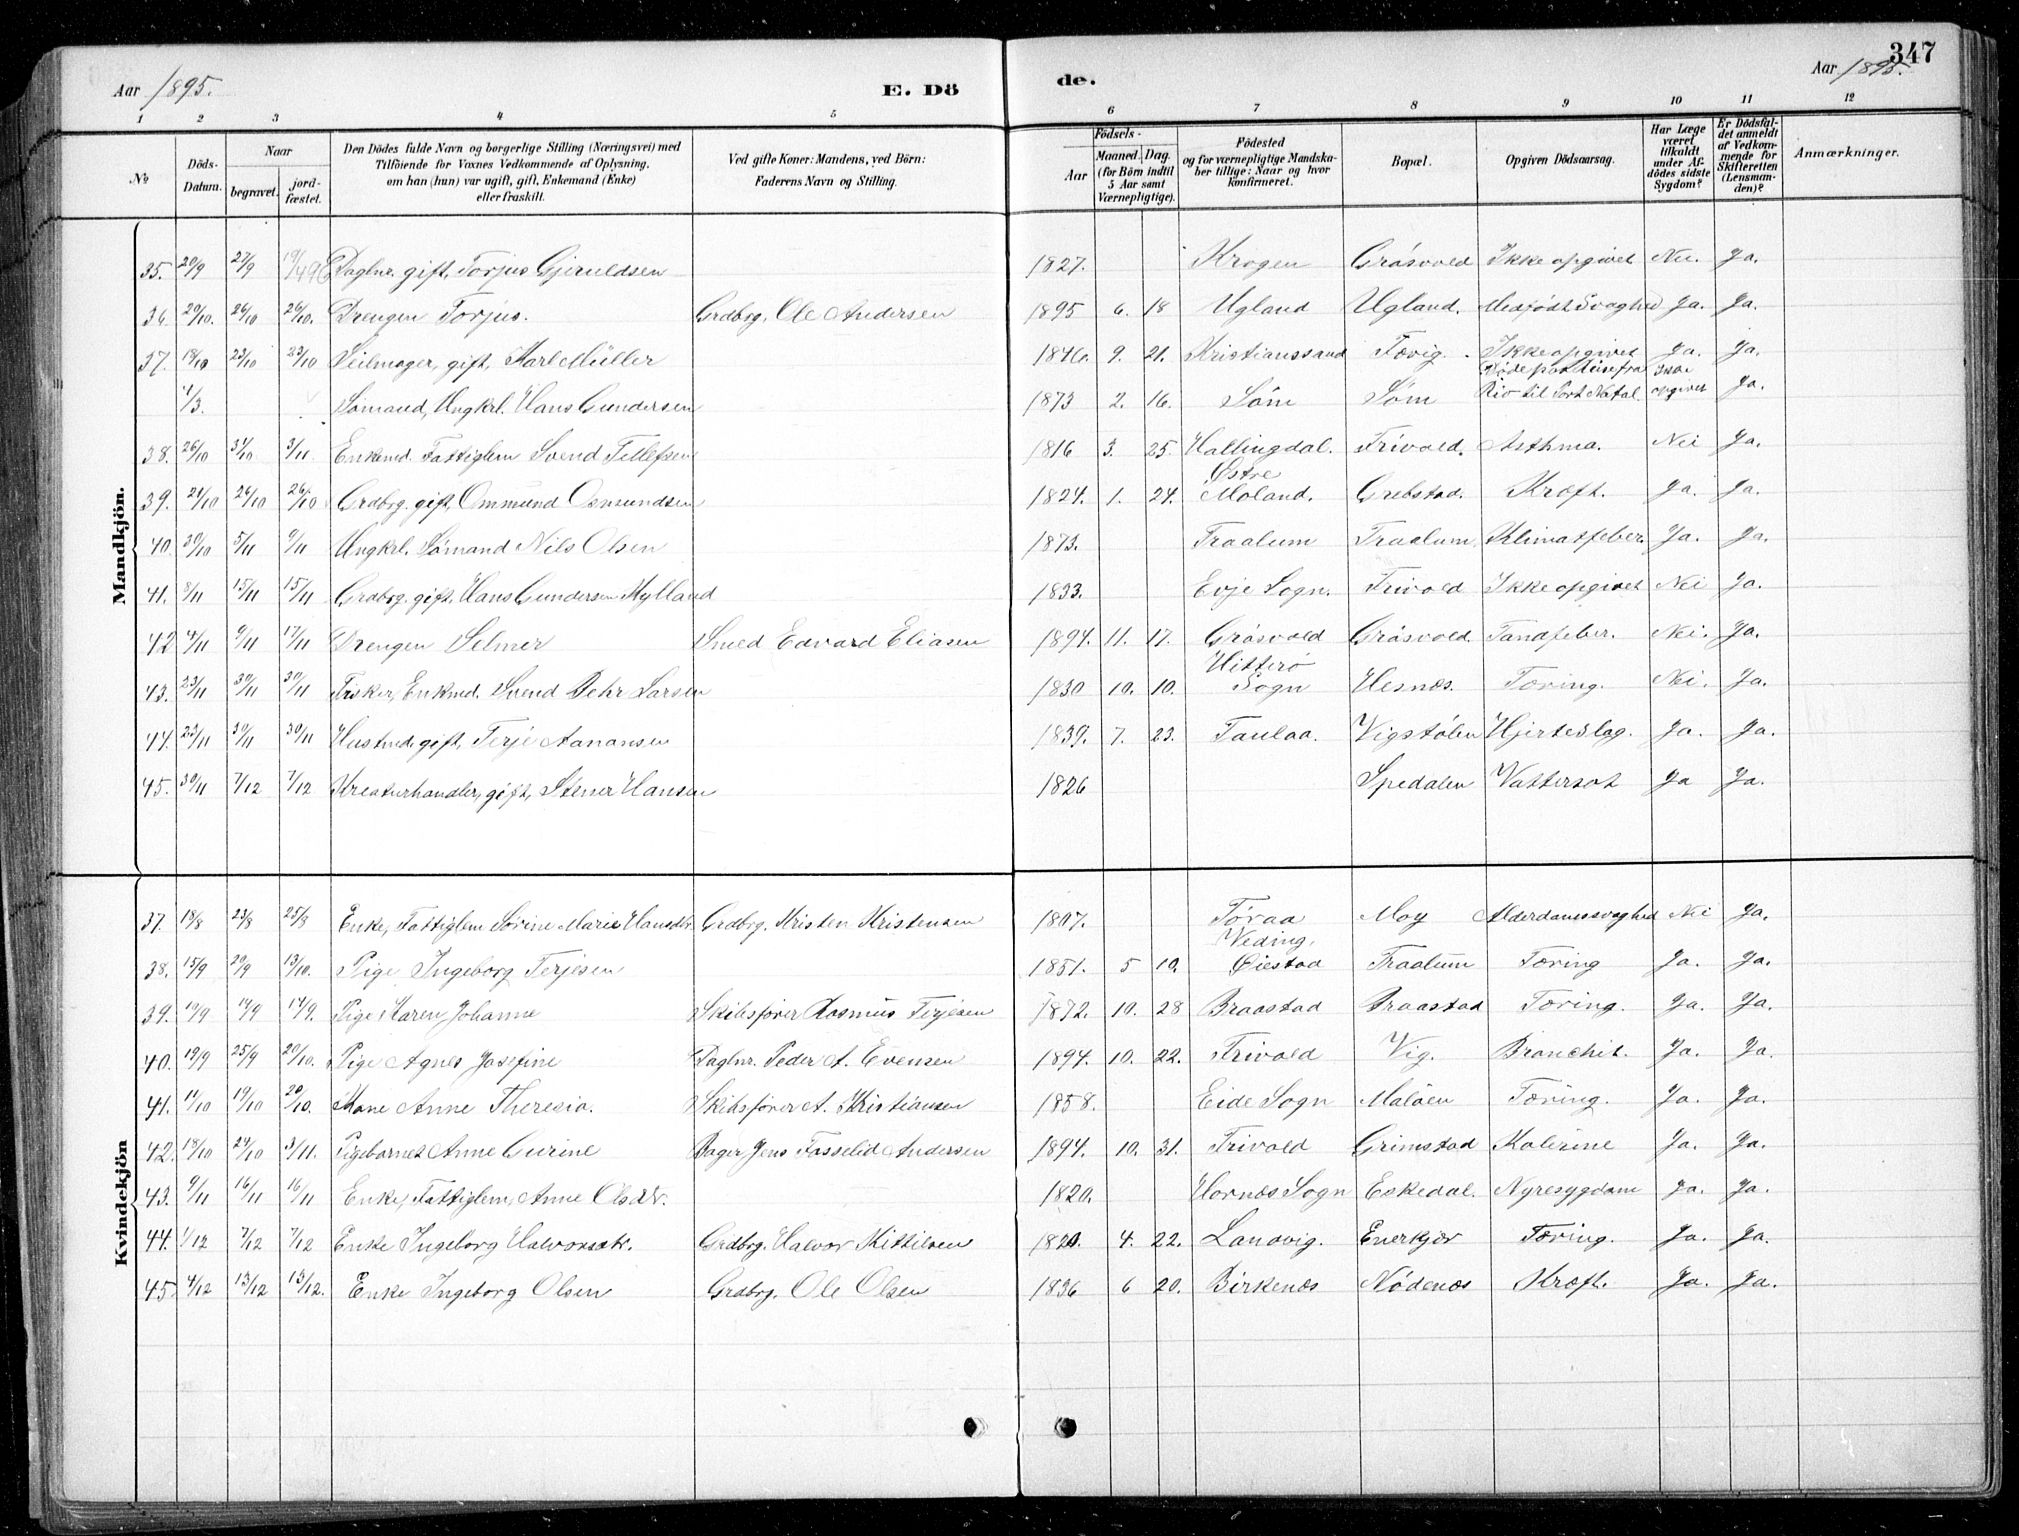 347
Aar 1895.
E. Dö
de.
Aar 1895.
1 2 3 4 5 6 7 8 9 10 11 12
No
Döds-Datum.
Naar
begravet.
jord-fæstet.
Den Dödes fulde Navn og borgerlige Stilling (Næringsvei) med
Tilföiende for Voxnes Vedkommende af Oplysning,
om han (hun) var ugift, gift, Enkemand (Enke)
eller fraskilt.
Ved gifte Koner: Mandens, ved Börn:
Faderens Navn og Stilling.
Födsels-
Aar
Maaned. Dag.
(for Börn indtil
5 Aar samt
Værnepligtige).
Födested
og for værnepligtige Mandska-
ber tillige: Naar og hvor
konfirmeret.
Bopæl.
Opgiven Dödsaarsag.
Har Læge
været
tilkaldt
under Af-
dödes sidste
Sygdom?
Er Dödsfal-
det anmeldt
af Vedkom-
mende for
Skifteretten
(Lensman-
den)?
Anmærkninger.
Mandkjön.
35. 20/9 27/9 Daglnr. gift, Torjus Gjeruldsen 1827. Krogen Gråsvold Ikke opgivet Nei. Ja.
36. 20/10. 26/10 26/10. Drengen Torjus. Grdbrg. Ole Andersen 1895 6. 18 Ugland Ugland. Medfödt Svaghed Ja. Ja.
37. 18/10 23/10 23/10 Seilmager, gift, Karl Müller 1846. 9. 21. Kristianssand Fævig. Ikke opgivet Ja. Ja.
4/3. Sømand, Ungkrl. Hans Gundersen 1873 2. 16. Søm Søm Døde paa Reise fra Rio til Port Natal. opgivet Ja.
38. 26/10 31/10 3/11 Enkemd. Fattiglem Svend Tellefsen 1816 3. 25. Hallingdal. Frivold. Asthma. Nei Ja.
39. 21/10 26/10 26/10 Grdbrg. gift, Ommund Osmundsen 1824. 1. 24. Østre Moland. Grebstad. Kræft. Ja. Ja.
40. 30/10 5/11 9/11 Ungkrl. Sømand Nils Olsen 1873. Traalum Traalum. Klimatfeber. Ja. Ja.
41. 8/11 15/11 15/11 Grdbrg. gift. Hans Gundersen Mylland 1833. Evje Sogn. Frivold Ikke opgivet Nei Ja.
42 4/11 9/11 17/11 Drengen Selmer Smed Edvard Eliasen 1894. 11. 17. Gråsvold Gråsvold. Tandfeber. Nei. Ja.
43. 23/11 30/11 30/11 Fisker, Enkmd. Svend Pehr Larsen 1830 10. 10. Hitterø Sogn Hesnæs. Tæring. Nei. Ja.
44. 23/11 30/11 30/11 Husmd. gift, Terje Aanansen 1839. 7. 23. Taulaa. Vigstølen Hjerteslag. Ja. Ja.
45. 30/11 7/12 7/12 Kreaturhandler, gift, Stener Hansen 1826 Spedalen Vattersot Ja Ja.
Kvindekjön
37. 18/8 23/8 25/8 Enke, Fattiglem Sørine Marie Hansdtr. Grdbrg. Kristen Kristensen 1807. Tøraa Moy Alderdomssvaghed Nei Ja.
38. 15/9 20/9 13/10. Pige Ingeborg Terjesen 1851. 5 10. Veding, Øiestad Traalum Tæring Ja. Ja.
39. 10/9 14/9 14/9. Pige Karen Johanne Skibsfører Rasmus Terjesen 1872. 10. 28 Braastad Braastad Tæring. Ja. Ja.
40. 19/9 25/9 20/10. Pige Agnes Josefine Daglnr. Peder A. Evensen 1894. 10. 22. Frivold Vig. Bronchit. Ja. Ja.
41. 14/10 19/10 20/10. Kone Anne Theresia. Skibsfører A. Kristiansen 1858. Eide Sogn Maløen Tæring. Ja. Ja.
42. 18/10 24/10 3/11. Pigebarnet Anne Gurine Bager Jens Fasselid Andersen 1894. 10. 31. Frivold Grimstad Kolerine Ja. Ja.
43. 9/11 16/11 16/11 Enke, Fattiglem, Anne Olsdtr. 1820. Hornæs Sogn Eskedal. Nyresygdom Ja. Ja.
44. 1/12 7/12 7/12 Enke Ingeborg Halvorsdtr. Grdbrg. Halvor Kittilsen 4. 22. Landvig. Enerkjær Tæring. Ja. Ja.
45. 4/12 13/12 13/12. Enke Ingeborg Olsen Grdbrg. Ole Olsen 1836 6 20. Birkenæs Nødenæs Kræft. Ja. Ja.